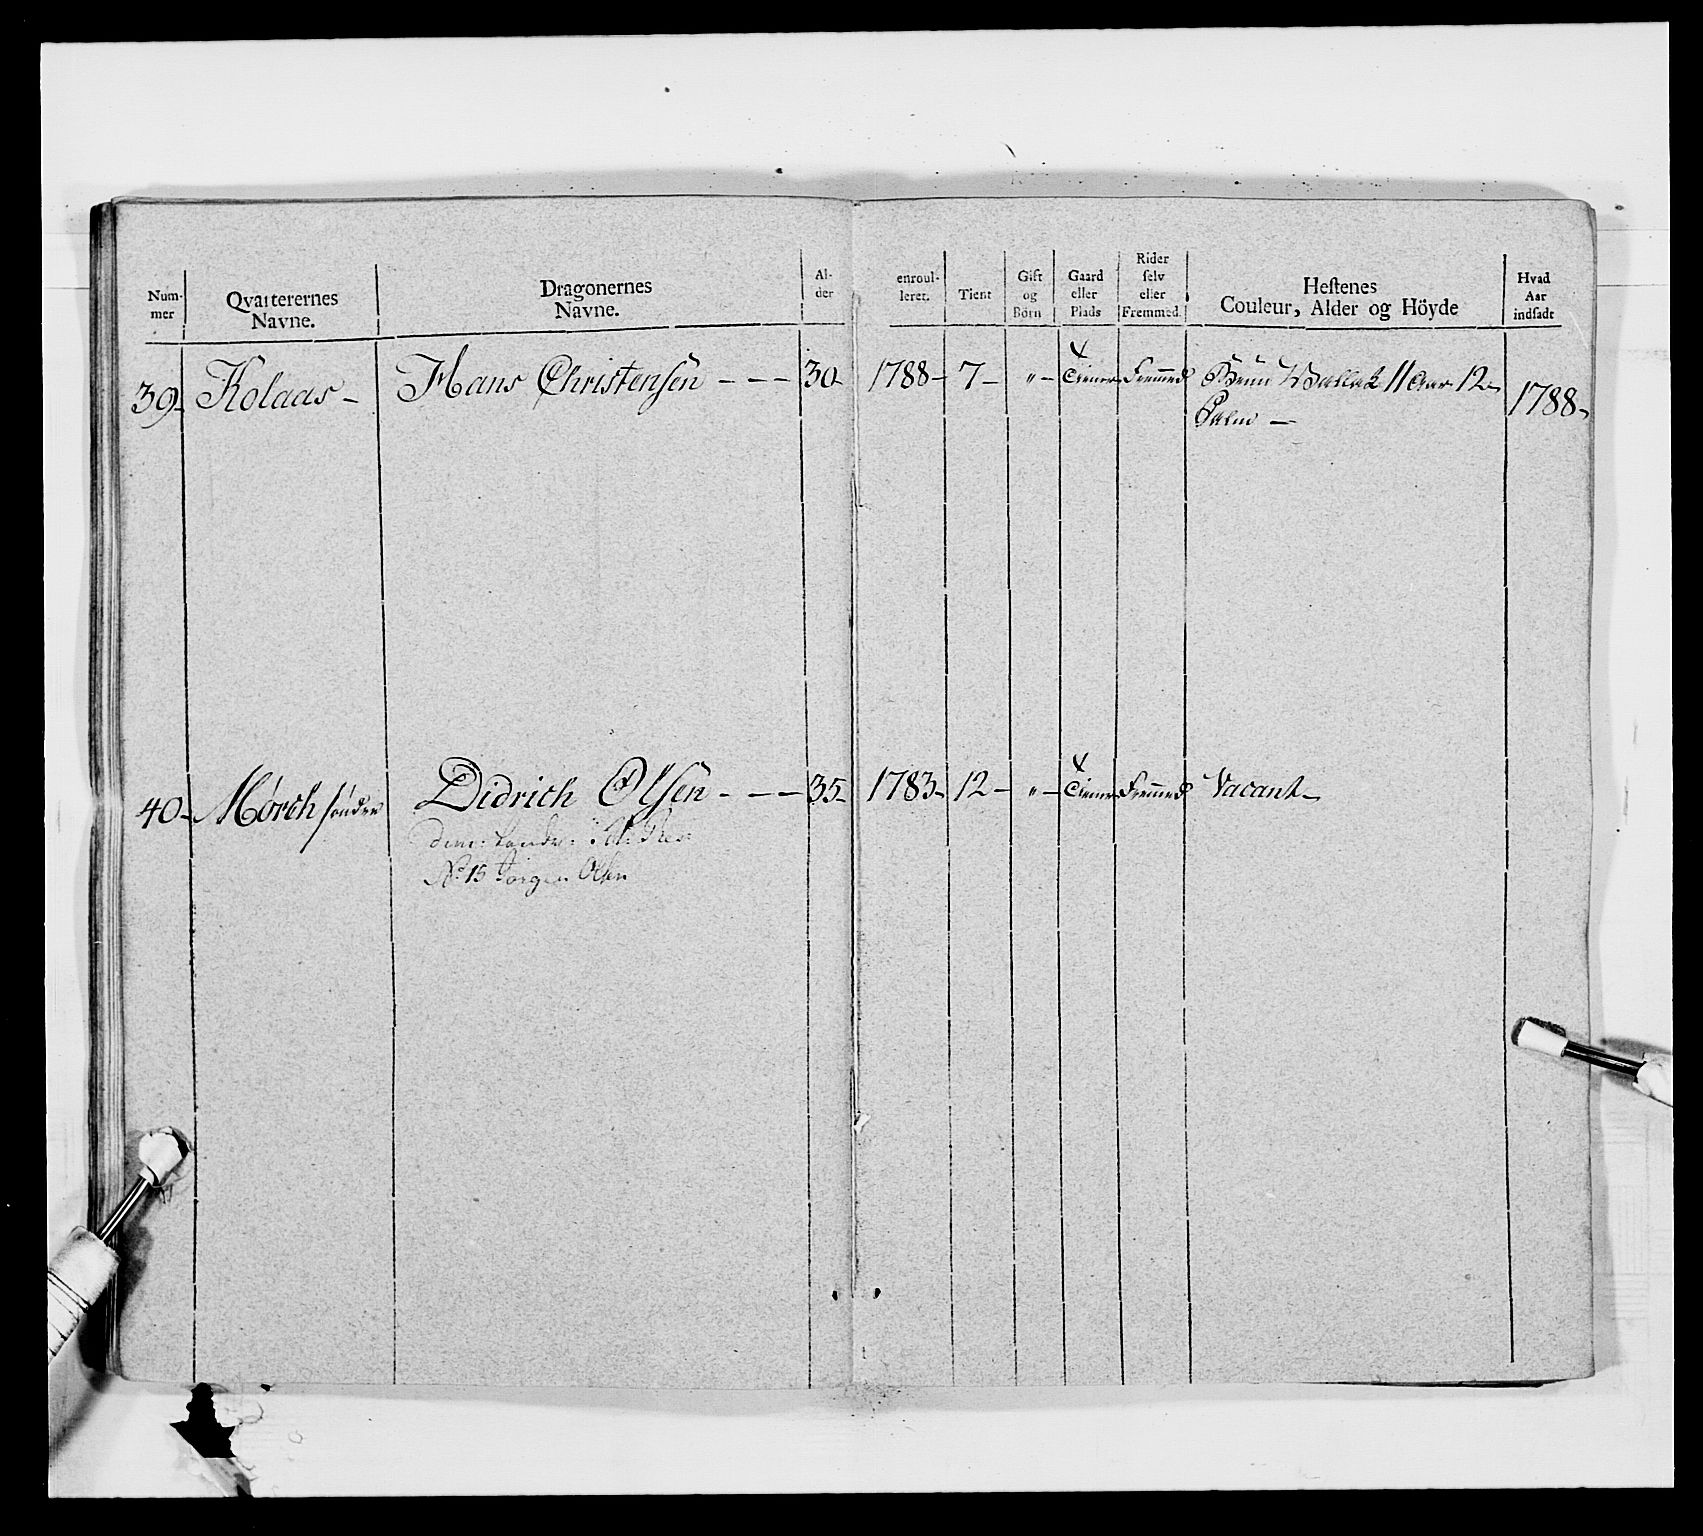 Num-
mer
Qvarterernes
Navne.
Dragonernes
Navne.
Al-
der
enroul-
leret.
Tient
Gift
og
Börn
Gaard
eller
Plads
Rider
selv
eller
Fremmed.
Hestenes
Couleur, Alder og Höyde
Hvad
Aar
indsadt
39- Kolaas - Hans Christensen - - - 30- 1788- 7- „- Tiener Fremmed Bruun Wallak 11 Aar 12-
Qvalm - 1788-
40- Mørch sönder Didrich Olsen - - - 35- 1783- 12- „- Tiener Fremmed Vacant-
No 15 Jörgen Olsen